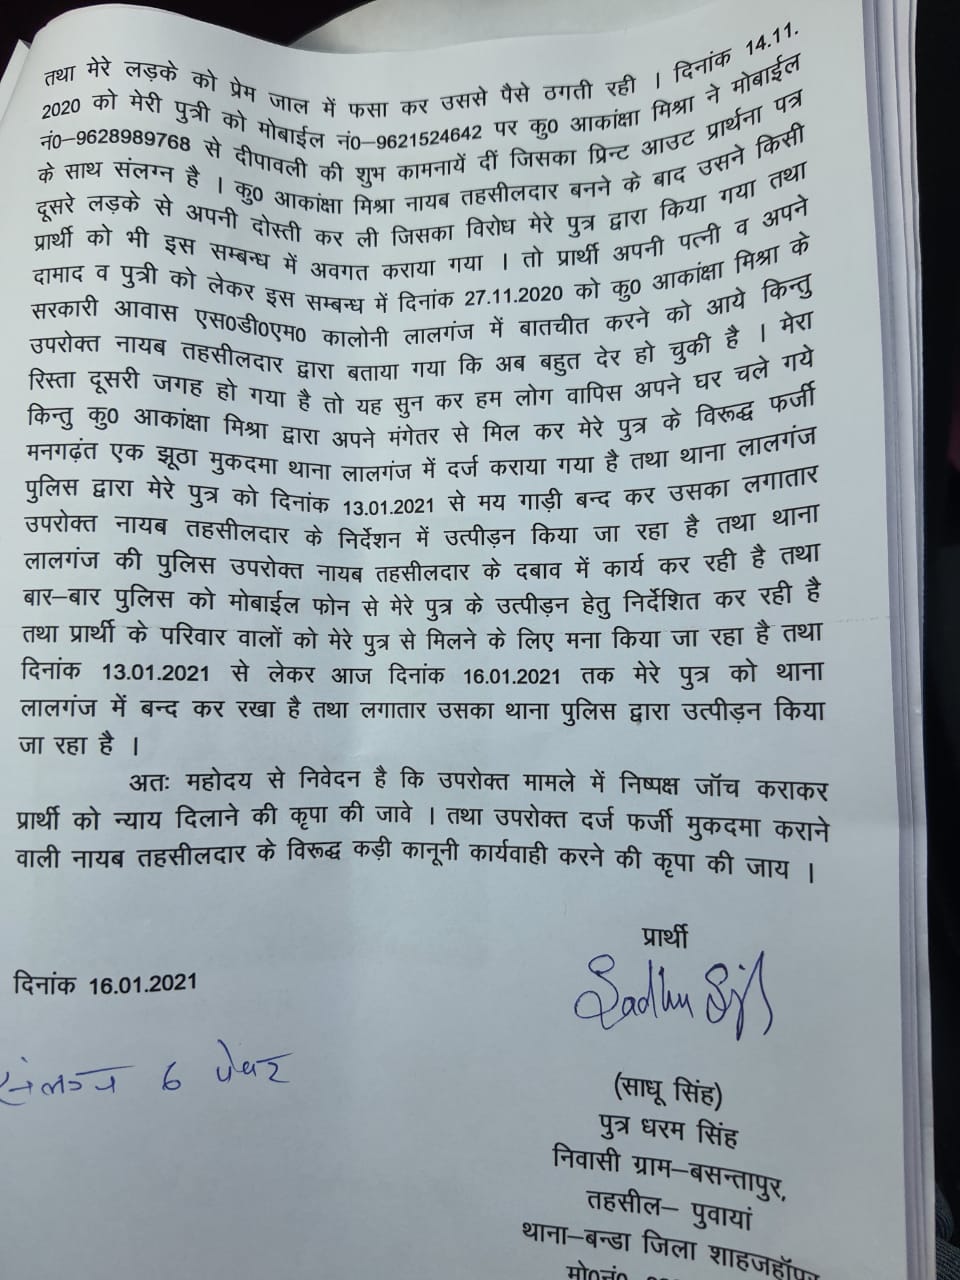 तथा मेरे लड़के को प्रेम जाल में फसा कर उससे पैसे ठगती रही । दिनांक 14.11.
2020 को मेरी पुत्री को मोबाईल नं0–9621524642 पर कु0 आकांक्षा मिश्रा ने मोबाईल
नं0–9628989768 से दीपावली की शुभ कामनायें दीं जिसका प्रिन्ट आउट प्रार्थना पत्र
के साथ संलग्न है । कु0 आकांक्षा मिश्रा नायब तहसीलदार बनने के बाद उसने किसी
दूसरे लड़के से अपनी दोस्ती कर ली जिसका विरोध मेरे पुत्र द्वारा किया गया तथा
प्रार्थी को भी इस सम्बन्ध में अवगत कराया गया । तो प्रार्थी अपनी पत्नी व अपने
दामाद व पुत्री को लेकर इस सम्बन्ध में दिनांक 27.11.2020 को कु0 आकांक्षा मिश्रा के
सरकारी आवास एस0डी0एम0 कालोनी लालगंज में बातचीत करने को आये किन्तु
उपरोक्त नायब तहसीलदार द्वारा बताया गया कि अब बहुत देर हो चुकी है । मेरा
रिस्ता दूसरी जगह हो गया है तो यह सुन कर हम लोग वापिस अपने घर चले गये
किन्तु कु0 आकांक्षा मिश्रा द्वारा अपने मंगेतर से मिल कर मेरे पुत्र के विरूद्ध फर्जी
मनगढ़ंत एक झूठा मुकदमा थाना लालगंज में दर्ज कराया गया है तथा थाना लालगंज
पुलिस द्वारा मेरे पुत्र को दिनांक 13.01.2021 से मय गाड़ी बन्द कर उसका लगातार
उपरोक्त नायब तहसीलदार के निर्देशन में उत्पीड़न किया जा रहा है तथा थाना
लालगंज की पुलिस उपरोक्त नायब तहसीलदार के दबाव में कार्य कर रही है तथा
बार–बार पुलिस को मोबाईल फोन से मेरे पुत्र के उत्पीड़न हेतु निर्देशित कर रही है
तथा प्रार्थी के परिवार वालों को मेरे पुत्र से मिलने के लिए मना किया जा रहा है तथा
दिनांक 13.01.2021 से लेकर आज दिनांक 16.01.2021 तक मेरे पुत्र को थाना
लालगंज में बन्द कर रखा है तथा लगातार उसका थाना पुलिस द्वारा उत्पीड़न किया
जा रहा है ।
अतः महोदय से निवेदन है कि उपरोक्त मामले में निष्पक्ष जॉच कराकर
प्रार्थी को न्याय दिलाने की कृपा की जावे । तथा उपरोक्त दर्ज फर्जी मुकदमा कराने
वाली नायब तहसीलदार के विरूद्ध कड़ी कानूनी कार्यवाही करने की कृपा की जाय ।
प्रार्थी
दिनांक 16.01.2021
Sadhu
संलग्न 6 पेपर
(साधू सिंह)
पुत्र धरम सिंह
निवासी ग्राम–बसन्तापुर,
तहसील– पुवायां
थाना–बन्डा जिला शाहजहॉपुर
मो0नं0